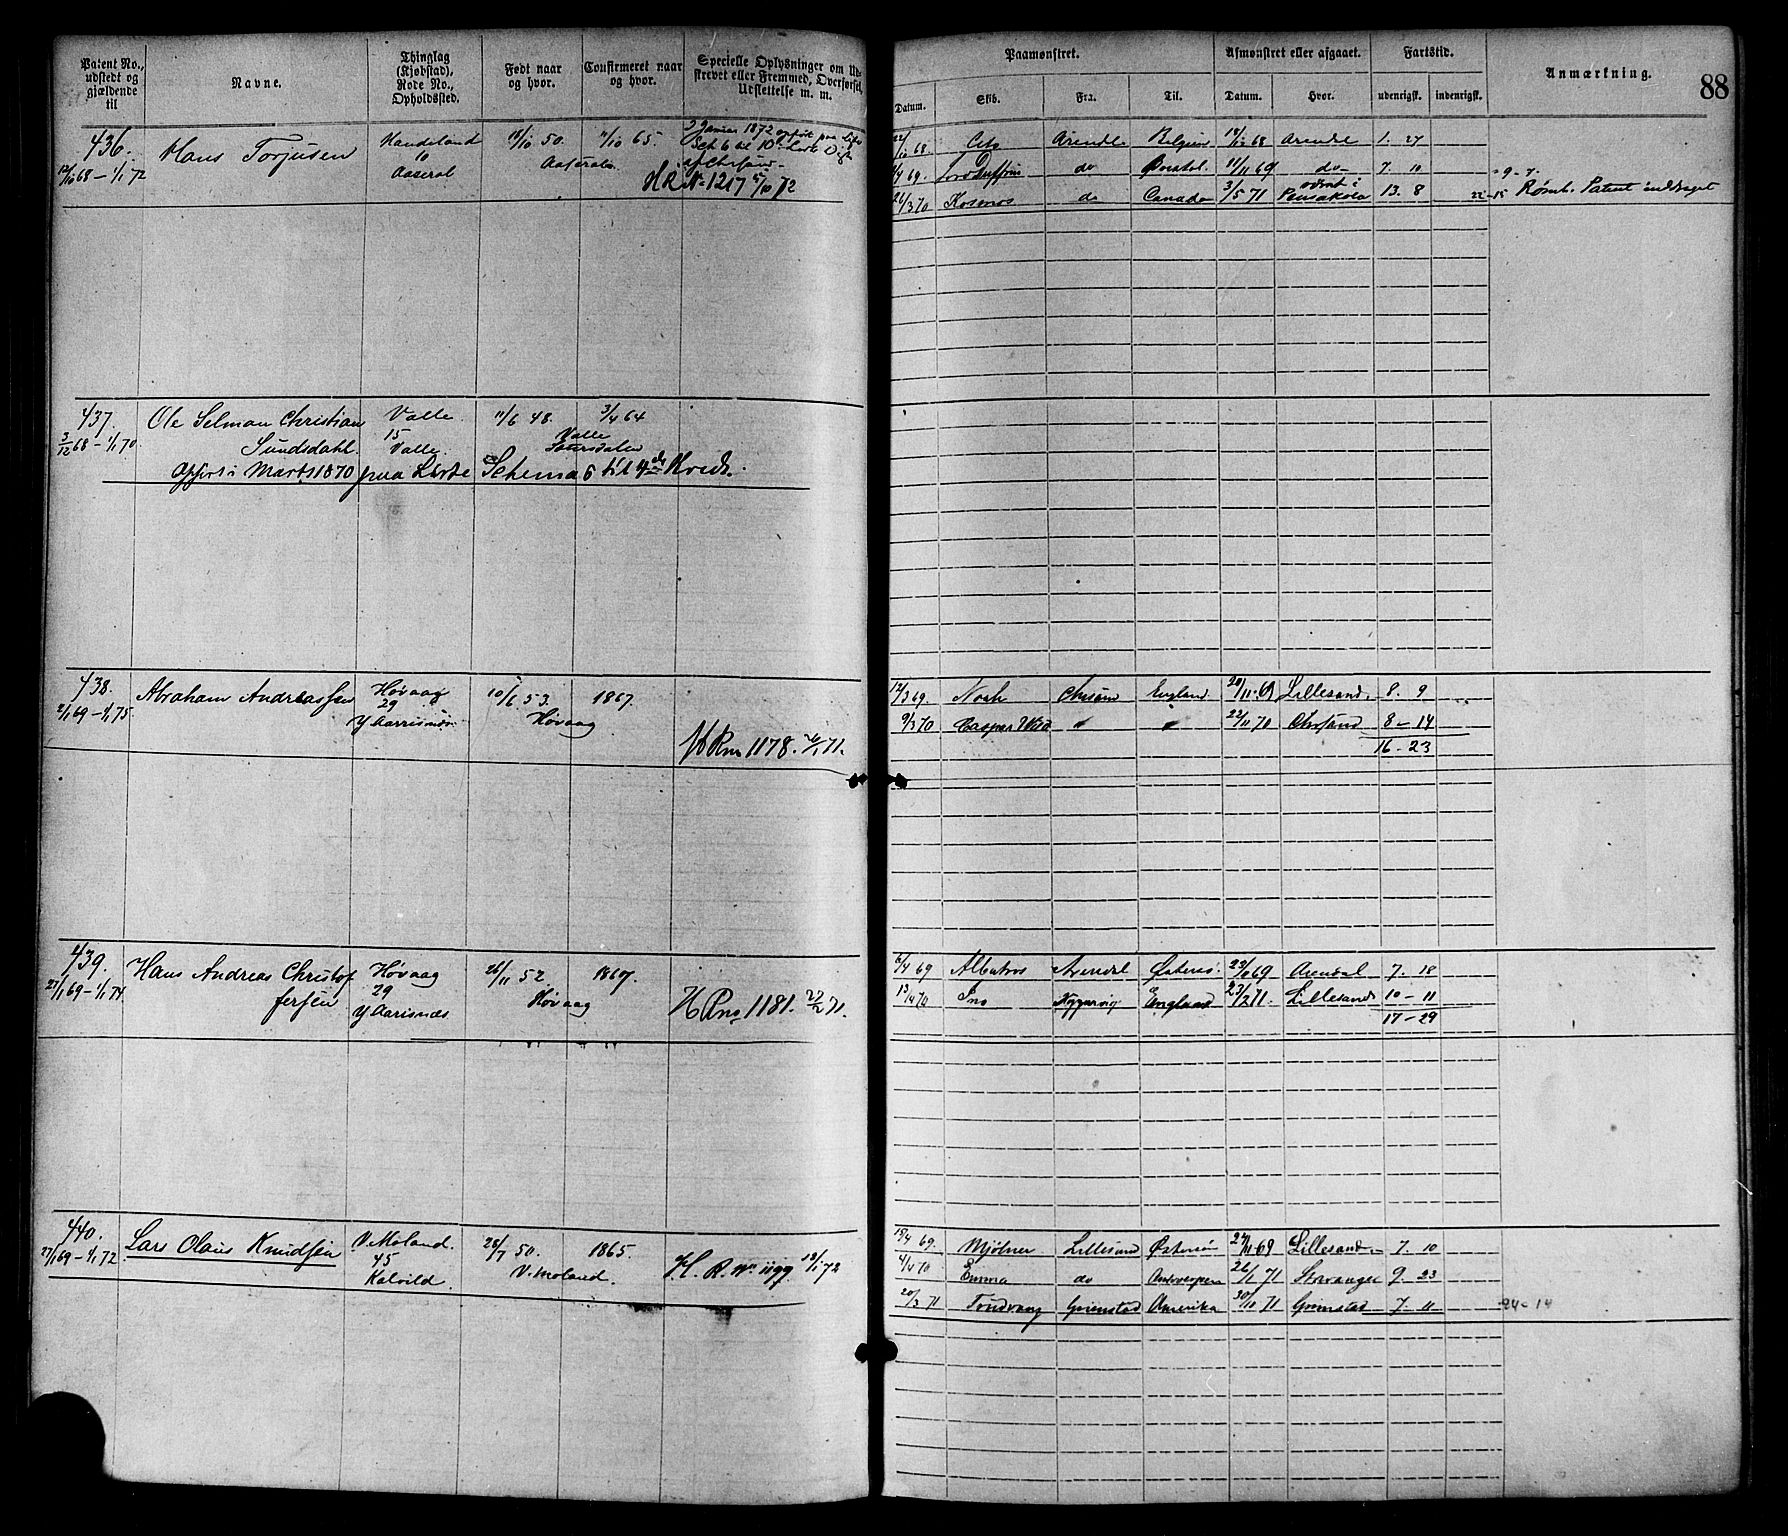 Patent No., udstedt og gjældende til
Navne.
Thinglag (Kjøbstad), Rode No., Opholdssted.
Født naar og hvor.
Confirmeret naar og hvor.
Specielle Oplysninger om Udskrevet eller Fremmed, Overførsel, Udslettelse m. m.
Paamønstret.
Afmønstret eller afgaaet.
Fartstid.
Anmærkning.
88
Datum.
Skib.
Fra.
Til.
Datum.
Hvor.
udenrigsk.
indenrigsk.
436.
12/10 68 – 1/1 72
Hans Torjusen
10
Aaseral
18/10 50.
11/10 65.
Aaseral
2 Januar 1872 opført paa
Sch. 6 til 10de
HR No 1217 5/10 72
22/10 68. Arendal Belgien 18/12 68 Arendal 1. 27
4 69. Lord Dufferin do 11/11 69 do 7. 10
26/3 70 Kosmos do Canada 3/5 71 Pensakola 13. 8
Patent inddraget
437.
3/12 68 – 1/1 70.
Ole Selman Christian
Sundsdahl.
Valle
15
Valle.
11/6 48.
3/4 64
Valle
Sætersdalen
Opført i Marts 1870 paa Lærde Schema 6 til 4de Kreds.
438.
2/1 69 – 1/1 75.
Abraham Andreassen
Høvaag
29
10/6 53.
1867.
Høvaag
HR no 1178. 26/1 71.
12/3 69. Noah Chrsand England 20/11 69 Lillesand. 8. 9
9/3 70 Caspar Wild " " 22/11 70 Chrsand 8 – 14
16 – 23
439.
27/1 69 – 1/1 74
Hans Andreas Christof
fersen
Høvaag
29
Y Aarisnæs
26/11 52.
1867.
Høvaag
HR no 1181. 27/2 71.
6/4 69 Albatros Arendal Østersø. 69 Arendal 7. 18
13/4 70 Ino England 23/2 71. Lillesand 10 – 11
17 – 29
440.
27/1 69 – 1/1 72
Lars Olaus Knudsen
V. Moland.
45
Kalvild
28/7 50.
1865.
V. Moland.
H. R. No 1199 12/1 72
15/4 69. Mjølner Lillesand Østersøn 27/11 69 Lillesand 7. 10
4/4 70 Emma do Antwerpen 26/1 71 Stavanger 9. 23
20/3 71 Tordvang Grimstad Amerika 30/10 71 Grimstad 7. 11
24 – 14